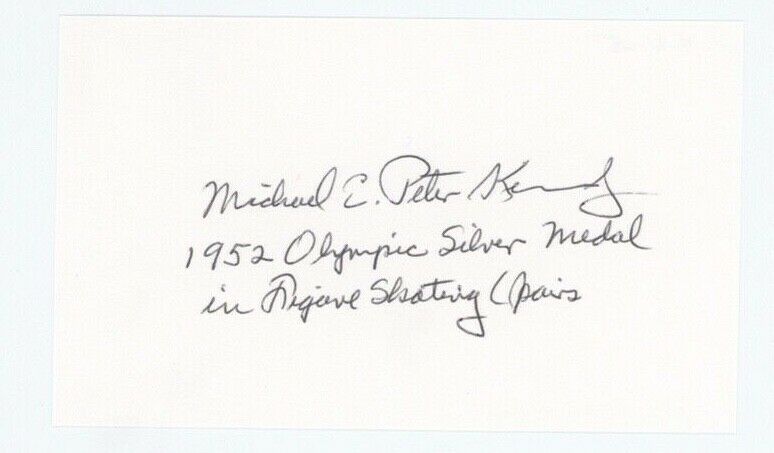 Michael E. Peter Kennedy
1952 Olympic Silver Medal
in Figure Skating (pairs